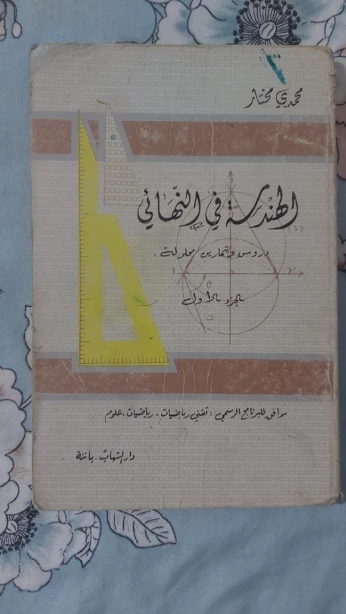 محمدي مختار
الهندسة في النهائي
دروس و تمارين محلولة .
الجزء الأول
موافق للبرنامج الرسمي : تقني رياضيات ، رياضيات ، علوم
دار الشهاب . باتنة